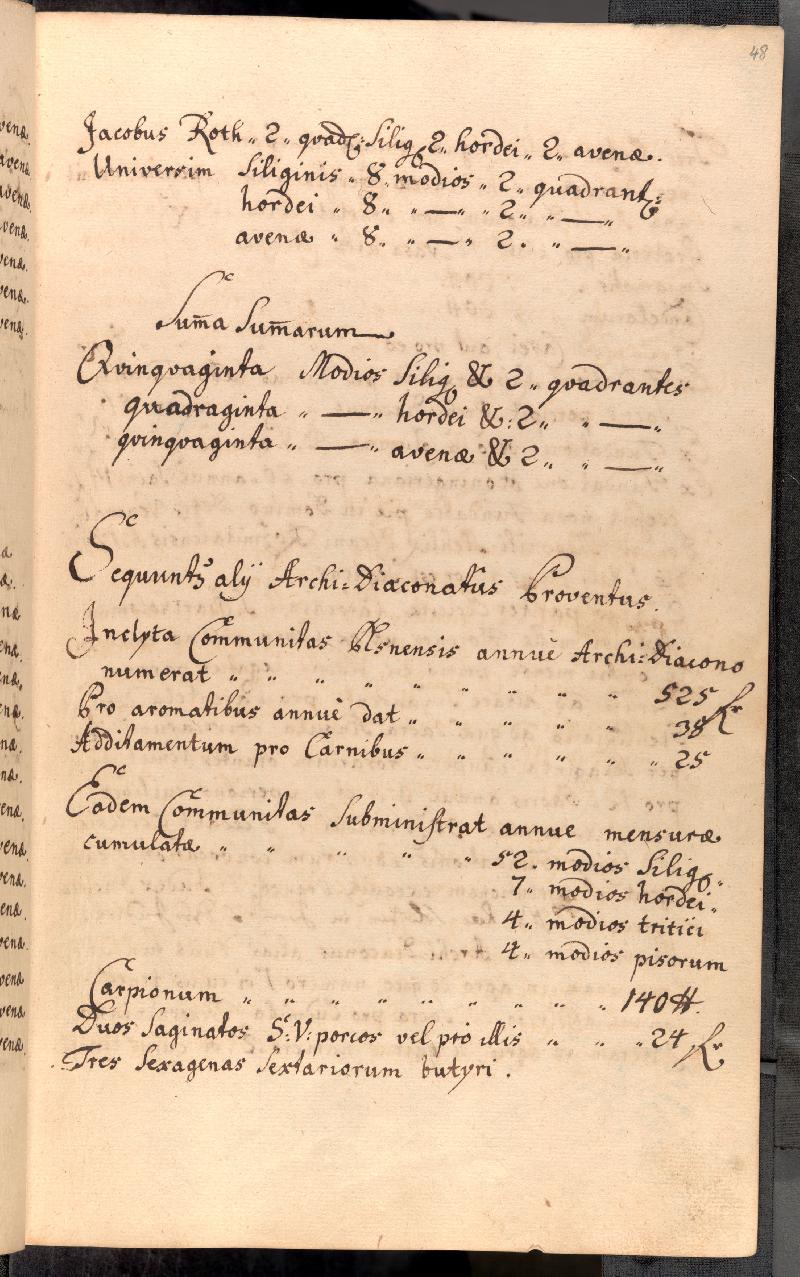 48
Jacobus Roth „ 2 „ quadr: Silig: 2 „ hordei „ 2 „ avenæ.
Universim Siliginis „ 8 „ modios „ 2 „ quadrant:
hordei „ 8 „ „ — „ „ 2 „ „ — „
avenæ „ 8 „ „ — „ 2. „ — „
Sum̄a Sum̄arum
Qvinqvaginta Modios Silig: & 2 „ quadrantes
quadraginta „ — „ hordei &: 2 „ „ — „
qvinqvaginta „ — „ avenæ & 2 „ „ — „
Sequunt᷒ alÿ Archi=Diaconatûs Proventus.
Inclyta Com̄unitas annuè Archi=Diacono
numerat „ „ „ „ „ „ „ „ „ 525 fr
Pro aromatibus annuè dat „ „ „ „ „ 38
Additamentum pro Carnibus „ „ „ „ „ „ 25
Eadem Com̄unitas Subministrat annue mensuræ
cumulatæ „ „ „ „ „ 52. modios Silig:
7 „ modios hordei „
4 „ modios tritici
4 „ modios pisorum
Carpionum „ „ „ „ „ „ „ „ „ 140 ℔.
Duos Saginatos S: V: porcos vel pro illis „ „ „ 24 fr
Tres Sexagenas Sextariorum butyri.